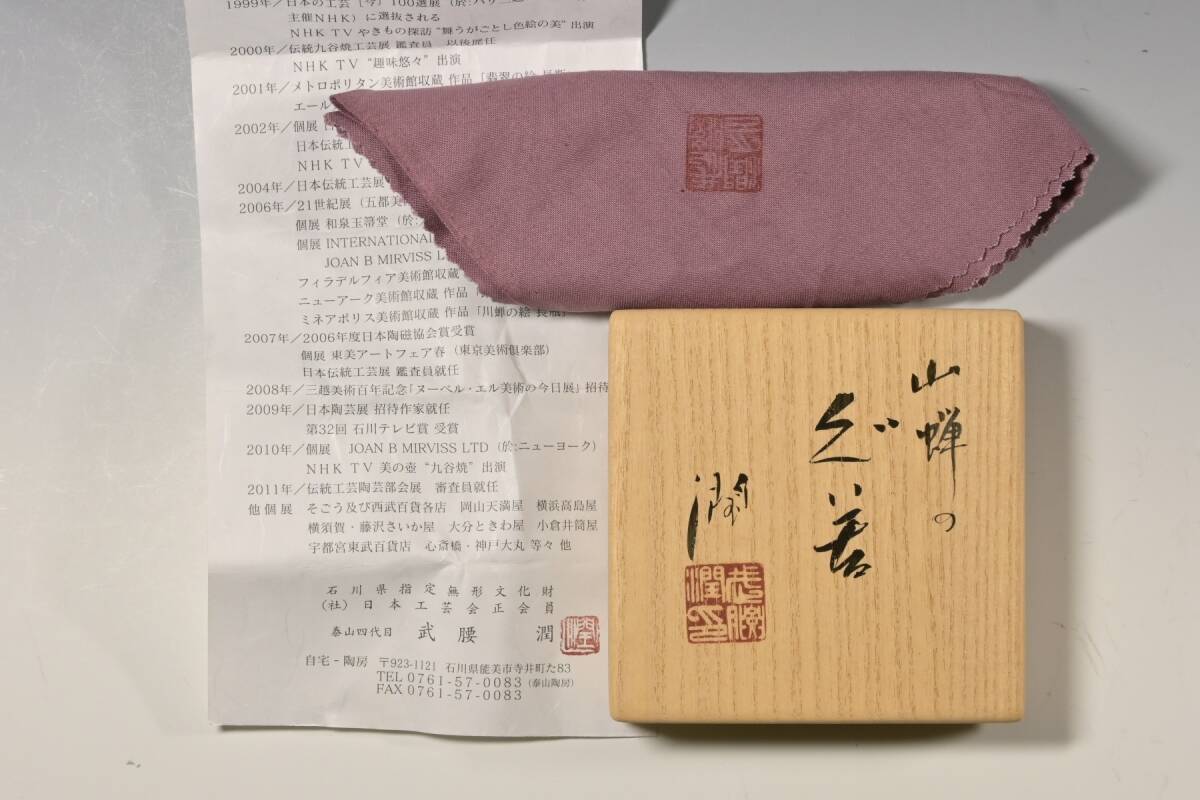 1999年／日本の工芸〔今〕100選展（於:パリ三
主催NHK）に選抜される
NHK TV やきもの探訪“舞うがごとし色絵の美”出演
2000年／伝統九谷焼工芸展 鑑査員 以後歴任
NHK TV “趣味悠々” 出演
2001年／メトロポリタン美術館収蔵 作品「翡翠の絵 長瓶
エール
2002年／個展
日本伝統工
NHK TV
2004年／日本伝統工芸展
2006年／21世紀展（五都美
個展 和泉玉箒堂（於:
個展 INTERNATIONAL
JOAN B MIRVISS L
フィラデルフィア美術館収蔵
ニューアーク美術館収蔵 作品
ミネアポリス美術館収蔵 作品「川蝉の絵 長瓶」
2007年／2006年度日本陶磁協会賞受賞
個展 東美アートフェア春（東京美術倶楽部）
日本伝統工芸展 鑑査員就任
2008年／三越美術百年記念「ヌーベル・エル美術の今日展」招待
2009年／日本陶芸展 招待作家就任
第32回 石川テレビ賞 受賞
2010年／個展 JOAN B MIRVISS LTD（於:ニューヨーク）
NHK TV 美の壺 “九谷焼” 出演
2011年／伝統工芸陶芸部会展 審査員就任
他 個 展 そごう及び西武百貨各店 岡山天満屋 横浜高島屋
横須賀・藤沢さいか屋 大分ときわ屋 小倉井筒屋
宇都宮東武百貨店 心斎橋・神戸大丸 等々 他
石川県指定無形文化財
（社）日本工芸会正会員
泰山四代目 武腰 潤
潤
自宅－陶房 〒923-1121 石川県能美市寺井町た83
TEL 0761-57-0083（泰山陶房）
FAX 0761-57-0083
山蝉の
ぐい呑
潤
武腰潤印